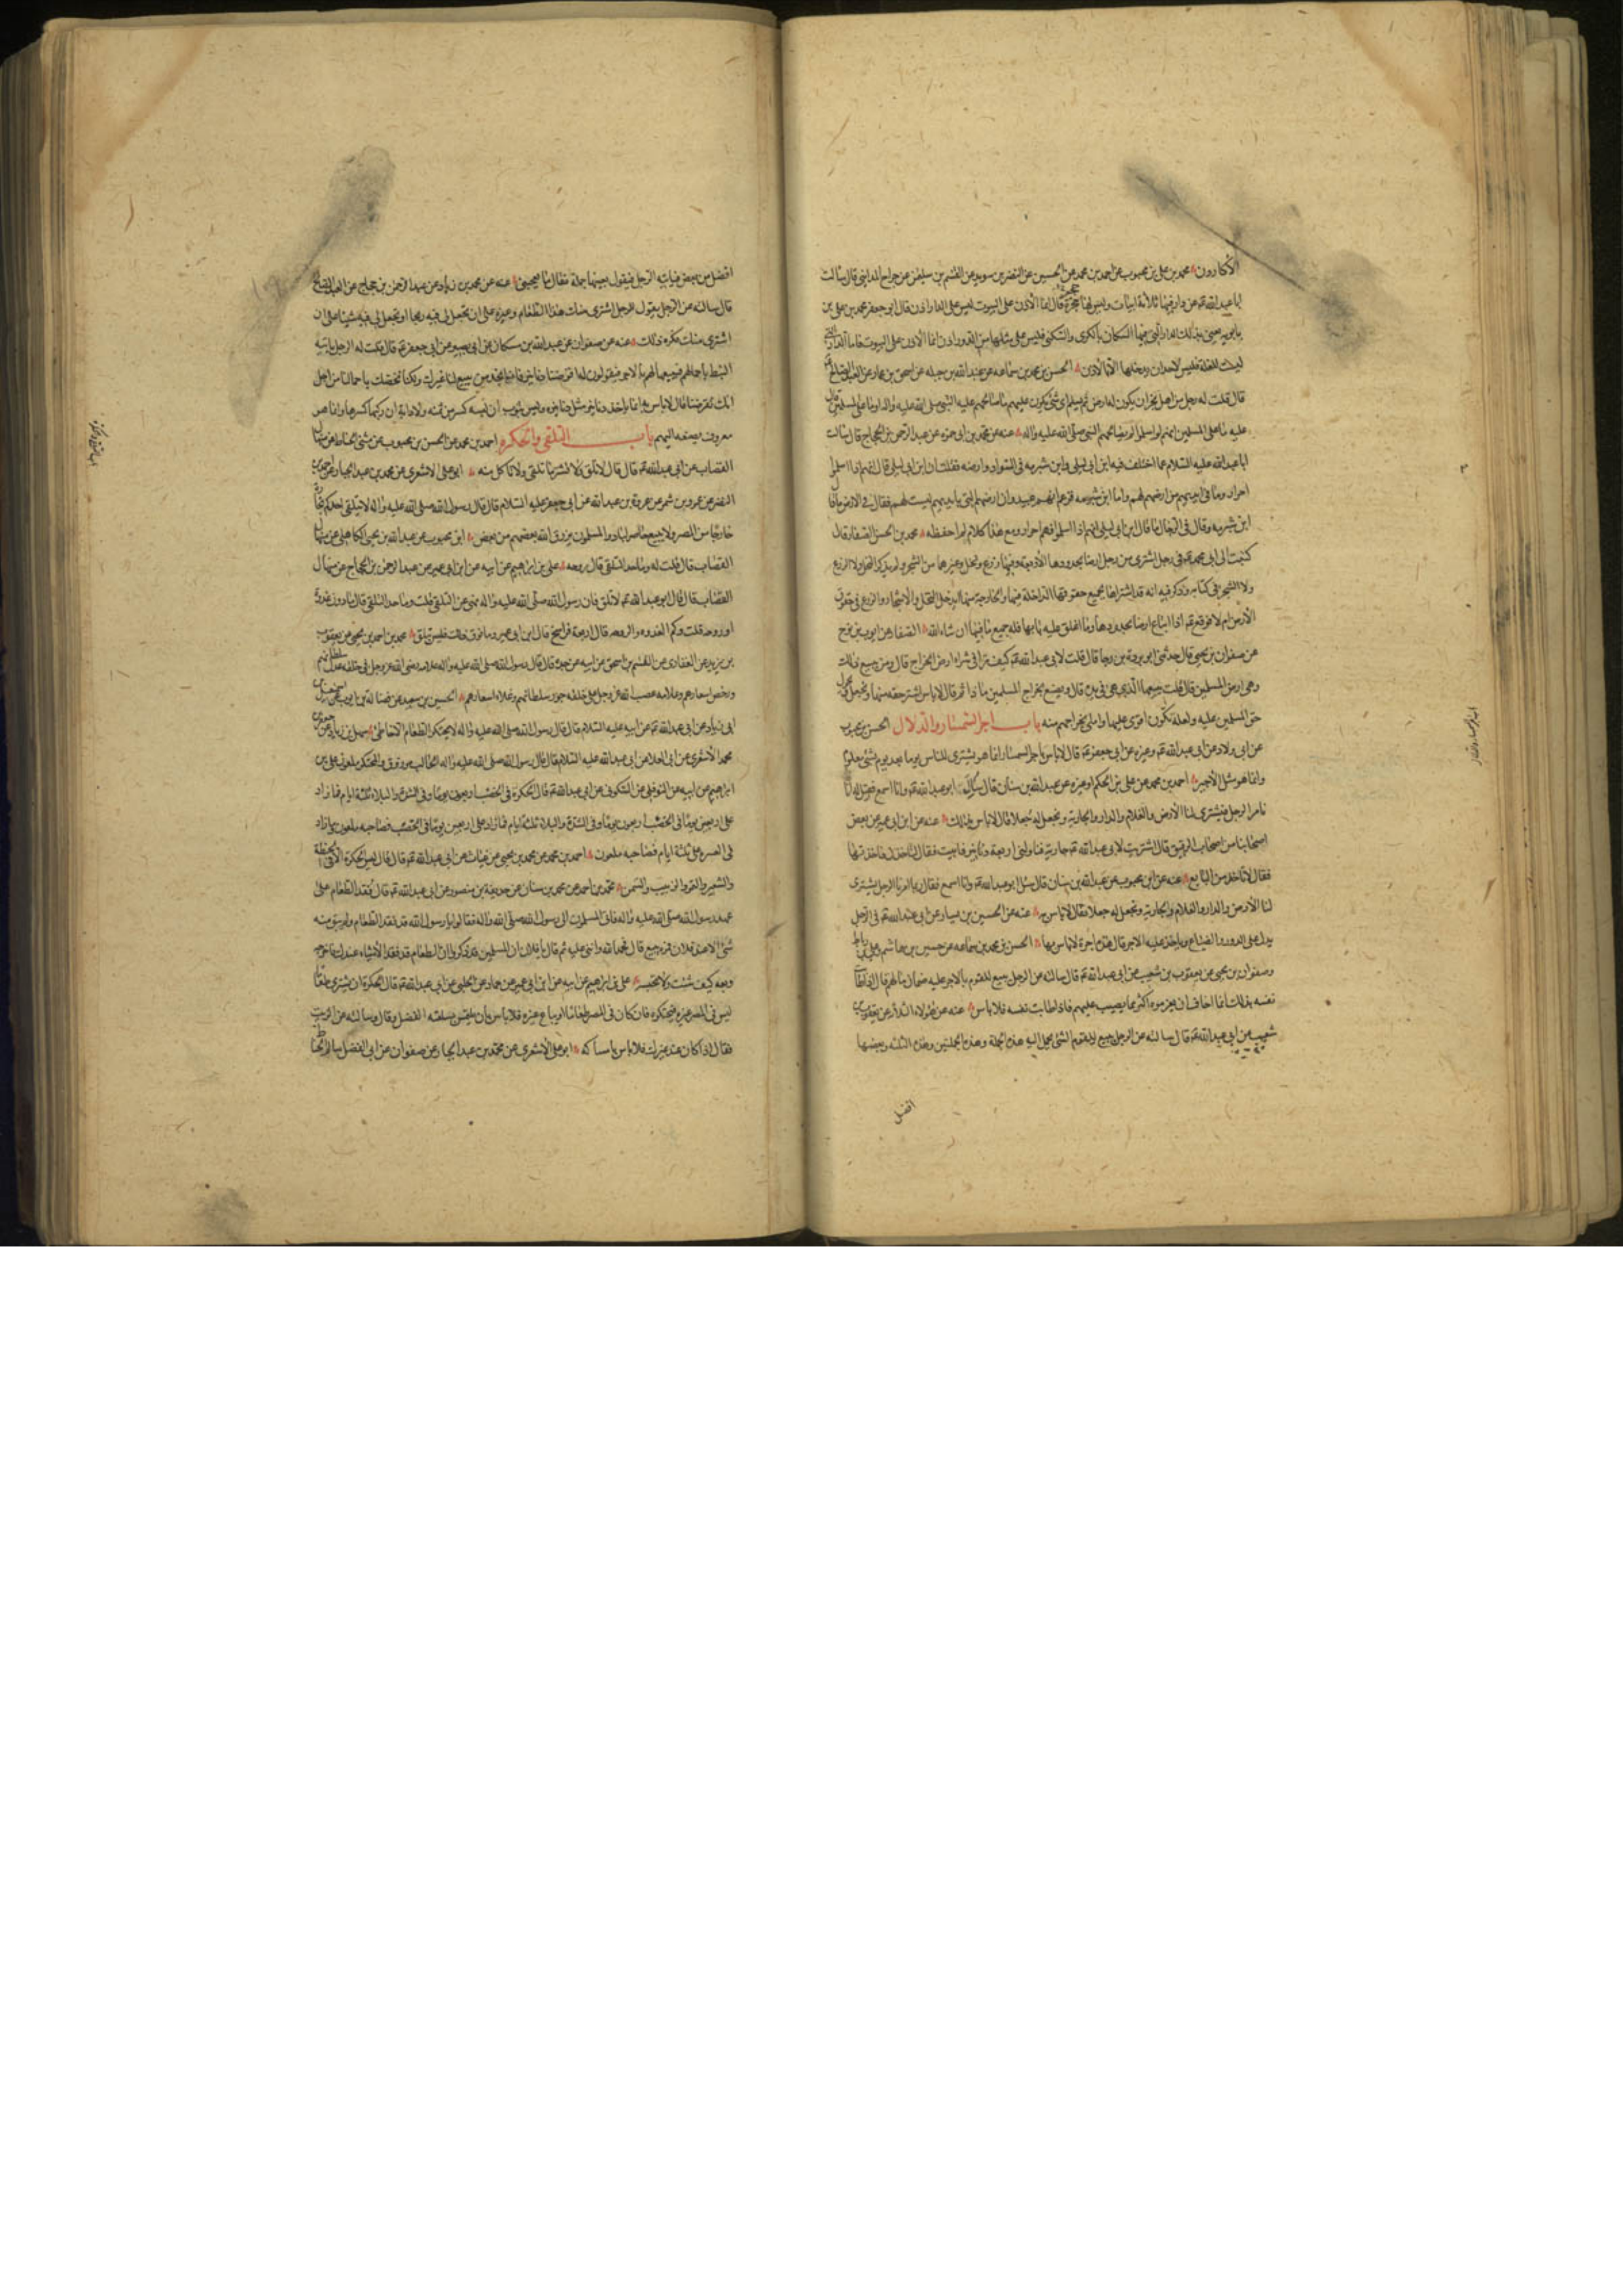 الاكارون محمد بن علي بن محبوب عن احمد بن محمد عن الحسين عن النضر بن سويد عن القسم بن سليمن عن جراح المدايني قال سالت
ابا عبد الله عن دار فيها ثلثة ابيات وليس لهن حجر قال انما الاذن على البيوت ليس على الدار اذن قال ابو جعفر محمد بن علي بن
بابويه يعني بذلك الدار التي فيها السكان بالكرى والسكنى فليس على مثلها من الدور اذن انما الاذن على البيوت فاما الدار التي
ليست للغلة فليس لاحد ان يدخلها الا باذن الحسن بن محمد بن سماعه عن عبد الله بن جبله عن اسحق بن عمار عن العبد الصالح
قال قلت له رجل من اهل نجران يكون له ارض ثم يسلم اى شئ يكون عليهم ما صالحهم عليه النبي صلى الله عليه واله او ما على المسلمين قال
عليه ما على المسلمين انهم لو اسلموا لم يصالحهم النبي صلى الله عليه واله عنه عن محمد بن ابي حمزه عن عبد الرحمن بن الحجاج قال سالت
ابا عبد الله عليه السلام عما اختلف فيه ابن ابي ليلى وابن شبرمه في السواد وارضه فقلت ان ابن ابي ليلى قال انهم اذا اسلموا
احرار وما في ايديهم من ارضهم لهم واما ابن شبرمه فزعم انهم عبيد وان ارضهم التي بايديهم ليست لهم فقال في الارض ما قال
ابن شبرمه وقال في الرجال ما قال ابن ابي ليلى انهم اذا اسلموا فهم احرار ومع هذا كلام لم احفظه محمد بن الحسن الصفار قال
كتبت الى ابي محمد في رجل اشترى من رجل ارضا بحدودها الاربعة وفيها زرع ونخل وغيرهما من الشجر ولم يذكر النخل ولا الزرع
ولا الشجر في كتابه وذكر فيه انه قد اشتراها بجميع حقوقها الداخلة فيها والخارجة منها ايدخل النخل والاشجار والزرع في حقوق
الارض ام لا فوقع اذا ابتاع ارضا بحدودها وما اغلق عليه بابها فله جميع ما فيها ان شاء الله الصفار عن ايوب بن نوح
عن صفوان بن يحيى قال حدثني ابو بردة بن رجا قال قلت لابي عبد الله كيف ترى في شراء ارض الخراج قال ومن يبيع ذلك
وهي ارض المسلمين قال قلت يبيعها الذي هي في يده قال ويصنع بخراج المسلمين ما ذا ثم قال لا باس اشتر حقه منها ويحول
حق المسلمين عليه ولعله تكون اقوى عليها واملى بخراجهم منه باب اجر السمسار والدلال الحسن بن محبوب
عن ابي ولاد عن ابي عبد الله وغيره عن ابي جعفر قال لا باس باجر السمسار انما هو يشترى للناس يوما بعد يوم بشئ معلوم
وانما هو مثل الاجير احمد بن محمد عن علي بن الحكم او غيره عن عبد الله بن سنان قال سئل ابو عبد الله وانا اسمع فقيل له انا
نامر الرجل فيشترى لنا الارض والغلام والدار والجارية ونجعل له جعلا قال لا باس بذلك عنه عن ابن ابي عمير عن بعض
اصحابنا من اصحاب الرقيق قال اشتريت لابي عبد الله جارية فناولني اربعة دنانير فابيت فقال لتاخذن فاخذتها
فقال لا تاخذ من البايع عنه عن ابن محبوب عن عبد الله بن سنان قال سئل ابو عبد الله وانا اسمع فقال ربما امرنا الرجل يشترى
لنا الارض والدار والغلام والجارية ونجعل له جعلا فقال لا باس به عنه عن الحسين بن بسار عن ابي عبد الله في الرجل
يدل على الدور والضياع وياخذ عليه الاجر قال هذه اجرة لا باس بها الحسن بن محمد بن سماعه عن حسين بن هاشم وعلي بن رباط
وصفوان بن يحيى عن يعقوب بن شعيب عن ابي عبد الله قال سالته عن الرجل يبيع للقوم بالاجر عليه ضمان مالهم قال اذا طابت
نفسه بذلك انما اخاف ان يغرموه اكثر مما يصيب عليهم فاذا طابت نفسه فلا باس عنه عن هؤلاء الثلثة عن يعقوب بن
شعيب عن ابي عبد الله قال سالته عن الرجل يبيع للقوم الشئ يحمل اليه هذه الجملة وهذه الجملتين وهذه الثلثه وبعضها
افضل
افضل من بعض فياتيه الرجل فيقول بعنيها جملة فقال ما يعجبني عنه عن محمد بن زياد عن عبد الرحمن بن حجاج عن العبد الصالح
قال سالته عن الرجل يقول للرجل اشترى منك هذا الطعام وغيره على ان تجعل لي فيه ربحا او تجعل لي فيه شيئا على ان
اشترى منك فكره ذلك عنه عن صفوان عن عبد الله بن مسكان عن ابي بصير عن ابي جعفر قال قلت له الرجل ياتيه
النبط باحمالهم فيبيعها لهم بالاجر فيقولون له اقرضنا دنانير فانا نجد من يبيع لنا غيرك ولكنا نخصك باحمالنا من اجل
انك تقرضنا قال لا باس به انما ياخذ دنانير مثل دنانيره وليس بثوب ان لبسه كسر من ثمنه ولا دابة ان ركبها كسرها وانما هو
معروف يصنعه اليهم باب التلقي والحكره احمد بن محمد عن الحسن بن محبوب عن مثنى الحناط عن منهال
القصاب عن ابي عبد الله قال قال لا تلق ولا تشتر ما تلقي ولا تاكل منه ابو علي الاشعري عن محمد بن عبد الجبار عن احمد بن
النضر عن عمرو بن شمر عن عروة بن عبد الله عن ابي جعفر عليه السلام قال قال رسول الله صلى الله عليه واله لا يتلقى احدكم تجارة
خارجا من المصر ولا يبيع حاضر لباد والمسلمون يرزق الله بعضهم من بعض ابن محبوب عن عبد الله بن يحيى الكاهلي عن منهال
القصاب قال قلت له وما حد التلقي قال روحه علي بن ابراهيم عن ابيه عن ابن ابي عمير عن عبد الرحمن بن الحجاج عن منهال
القصاب قال قال ابو عبد الله لا تلق فان رسول الله صلى الله عليه واله نهى عن التلقي قلت وما حد التلقي قال ما دون غدوة
او روحه قلت وكم الغدوه والروحه قال اربعة فراسخ قال ابن ابي عمير وما فوق ذلك فليس بتلق محمد بن احمد بن يحيى عن يعقوب
بن يزيد عن الغفاري عن القسم بن اسحق عن ابيه عن جده قال قال رسول الله صلى الله عليه واله علامه رضى الله عز وجل في خلقه عدل سلطانهم
ورخص اسعارهم وعلامه غضب الله عز وجل على خلقه جور سلطانهم وغلاء اسعارهم الحسين بن سعيد عن فضاله بن ايوب عن اسمعيل بن
ابي زياد عن ابي عبد الله عن ابيه عليه السلام قال قال رسول الله صلى الله عليه واله لا يحتكر الطعام الا خاطئ سهل بن زياد عن جعفر بن
محمد الاشعري عن ابن القداح عن ابي عبد الله عليه السلام قال قال رسول الله صلى الله عليه واله الجالب مرزوق والمحتكر ملعون علي بن
ابراهيم عن ابيه عن النوفلي عن السكوني عن ابي عبد الله قال الحكرة في الخصب اربعون يوما وفي الشدة والبلاء ثلثة ايام فما زاد
على اربعين يوما في الخصب فصاحبه ملعون وما زاد
في العسر على ثلثة ايام فصاحبه ملعون احمد بن محمد عن محمد بن يحيى عن غياث عن ابي عبد الله قال قال ليس الحكرة الا في الحنطة
والشعير والتمر والزبيب والسمن محمد بن احمد عن محمد بن سنان عن حذيفة بن منصور عن ابي عبد الله قال فقد الطعام على
عهد رسول الله صلى الله عليه واله فاتى المسلمون الى رسول الله صلى الله عليه واله فقالوا يا رسول الله قد فقد الطعام ولم يبق منه
شئ الا عند فلان فمره يبيع قال فحمد الله واثنى عليه ثم قال يا فلان ان المسلمين قد ذكروا ان الطعام قد فقد الا شيئا عندك فاخرجه
وبعه كيف شئت ولا تحبسه علي بن ابراهيم عن ابيه عن ابن ابي عمير عن حماد عن الحلبي عن ابي عبد الله قال الحكرة ان يشترى طعاما
ليس في المصر غيره فيحتكره فان كان في المصر طعاما او يباع غيره فلا باس بان يلتمس بسلعته الفضل وقال وسالته عن الزيت
فقال اذا كان عند غيرك فلا باس بامساكه ابو علي الاشعري عن محمد بن عبد الجبار عن صفوان عن ابي الفضل سالم الحناط